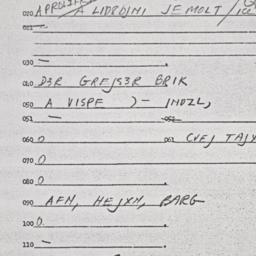 020 A LIDRDJNI JEMOLT/
021 —
030 — .
040 D3R GREJS3R BRIK
050 A VISPE )- INDZL,
051 — 052
060 0 061 CVEJ TAJ
070 0
080 0 .
090 AFN, HEJXN, BARG
100 0. .
110 — .